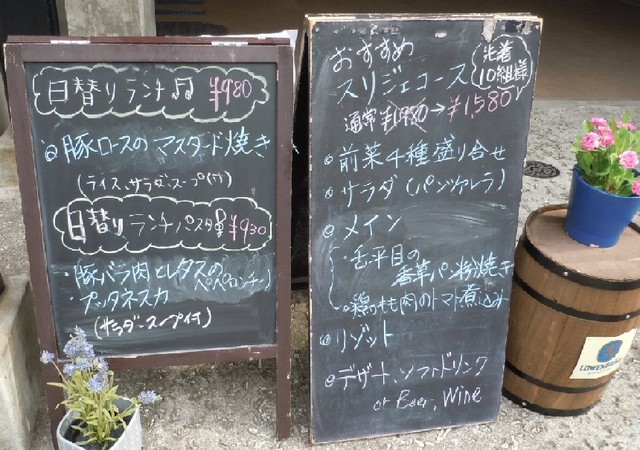 日替りランチ ¥980
豚ロースのマスタード焼き
(ライス、サラダ・スープ付)
日替りランチパスタ ¥930
・豚バラ肉とレタスの
ペペロンチーノ
・プッタネスカ
(サラダ・スープ付)
おすすめ
スリジェコース
先着
10組様
通常¥1,980→¥1,580
前菜4種盛り合せ
サラダ(パンツァレラ)
メイン
・舌平目の
香草パン粉焼き
・鶏もも肉のトマト煮込み
リゾット
デザート、ソフトドリンク
or Beer, Wine